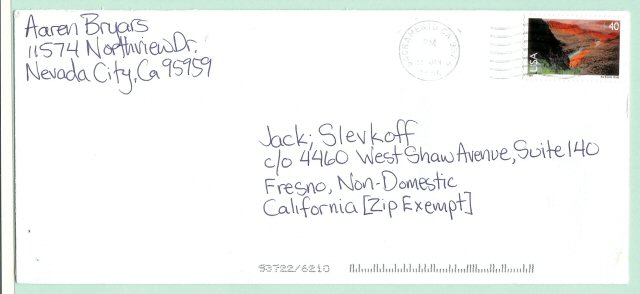 Aaren Bryars
11574 Northview Dr.
Nevada City, Ca 95959
SACRAMENTO CA
PM
40
USA
Jack; Slevkoff
c/o 4460 West Shaw Avenue, Suite 140
Fresno, Non-Domestic
California [Zip Exempt]
93722/6210